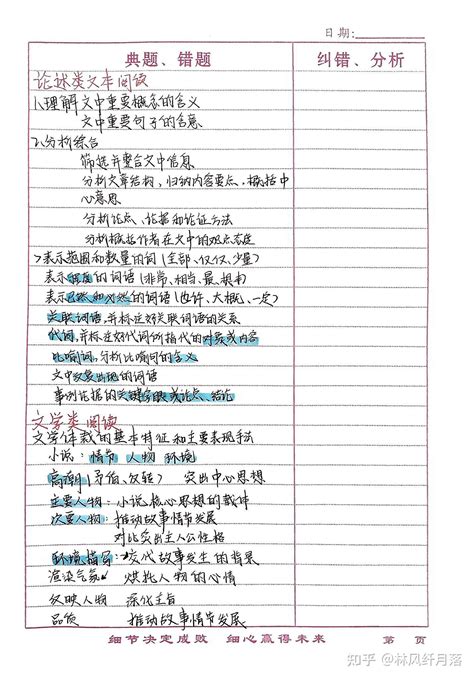 日期:
典题、错题 纠错、分析
论述类文本阅读
1.理解文中重要概念的含义
文中重要句子的含意
2.分析综合
筛选并整合文中信息
分析文章结构,归纳内容要点,概括中
心意思
分析论点、论据和论证方法
分析概括作者在文中的观点态度
>表示范围和数量的词(全部、仅仅、少量)
表示程度的词语(非常、相当、最、根本)
表示已然和必然的词语(也许、大概、一定)
关联词语,并标注好关联词语的关系
代词,并标注好代词所指代的对象或内容
比喻词,分析比喻句的含义
文中反复出现的词语
事例论据的关键字眼或论点、结论
文学类阅读
文学体裁的基本特征和主要表现手法
小说:情节 人物 环境
高潮(矛盾、反转) 突出中心思想
主要人物:小说核心思想的载体
次要人物:推动故事情节发展
对比突出主人公性格
环境描写:交代故事发生的背景
渲染气氛 烘托人物的心情
反映人物 深化主旨
品质 推动故事情节发展
细节决定成败 细心赢得未来 第 页
知乎 @林风纤月落